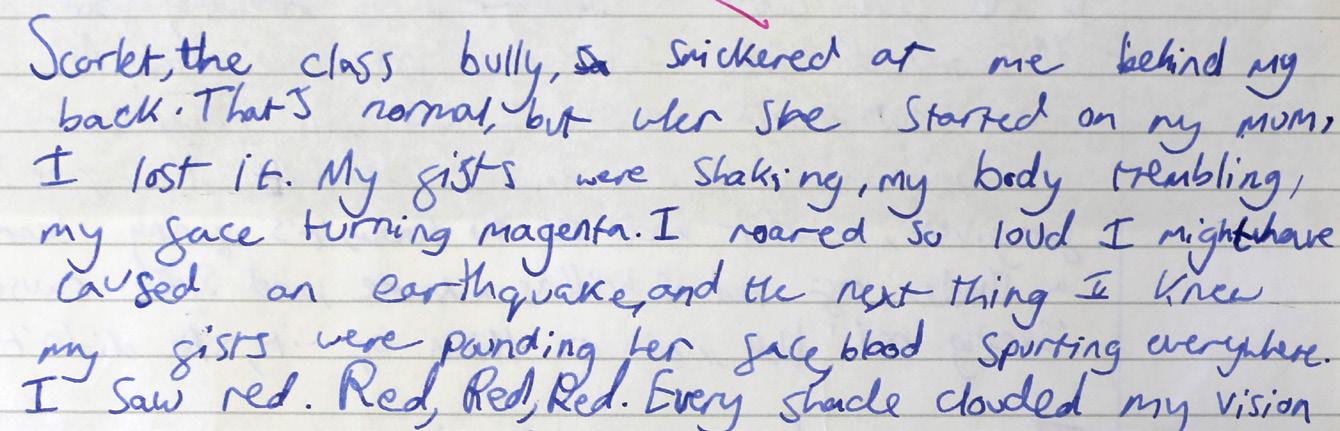 Scarlet, the class bully, snickered at me behind my
back. That's normal, but when she started on my mum,
I lost it. My fists were shaking, my body trembling,
my face turning magenta. I roared so loud I might have
caused an earthquake, and the next thing I knew
my fists were pounding her face, blood spurting everywhere.
I saw red. Red, Red, Red. Every shade clouded my vision